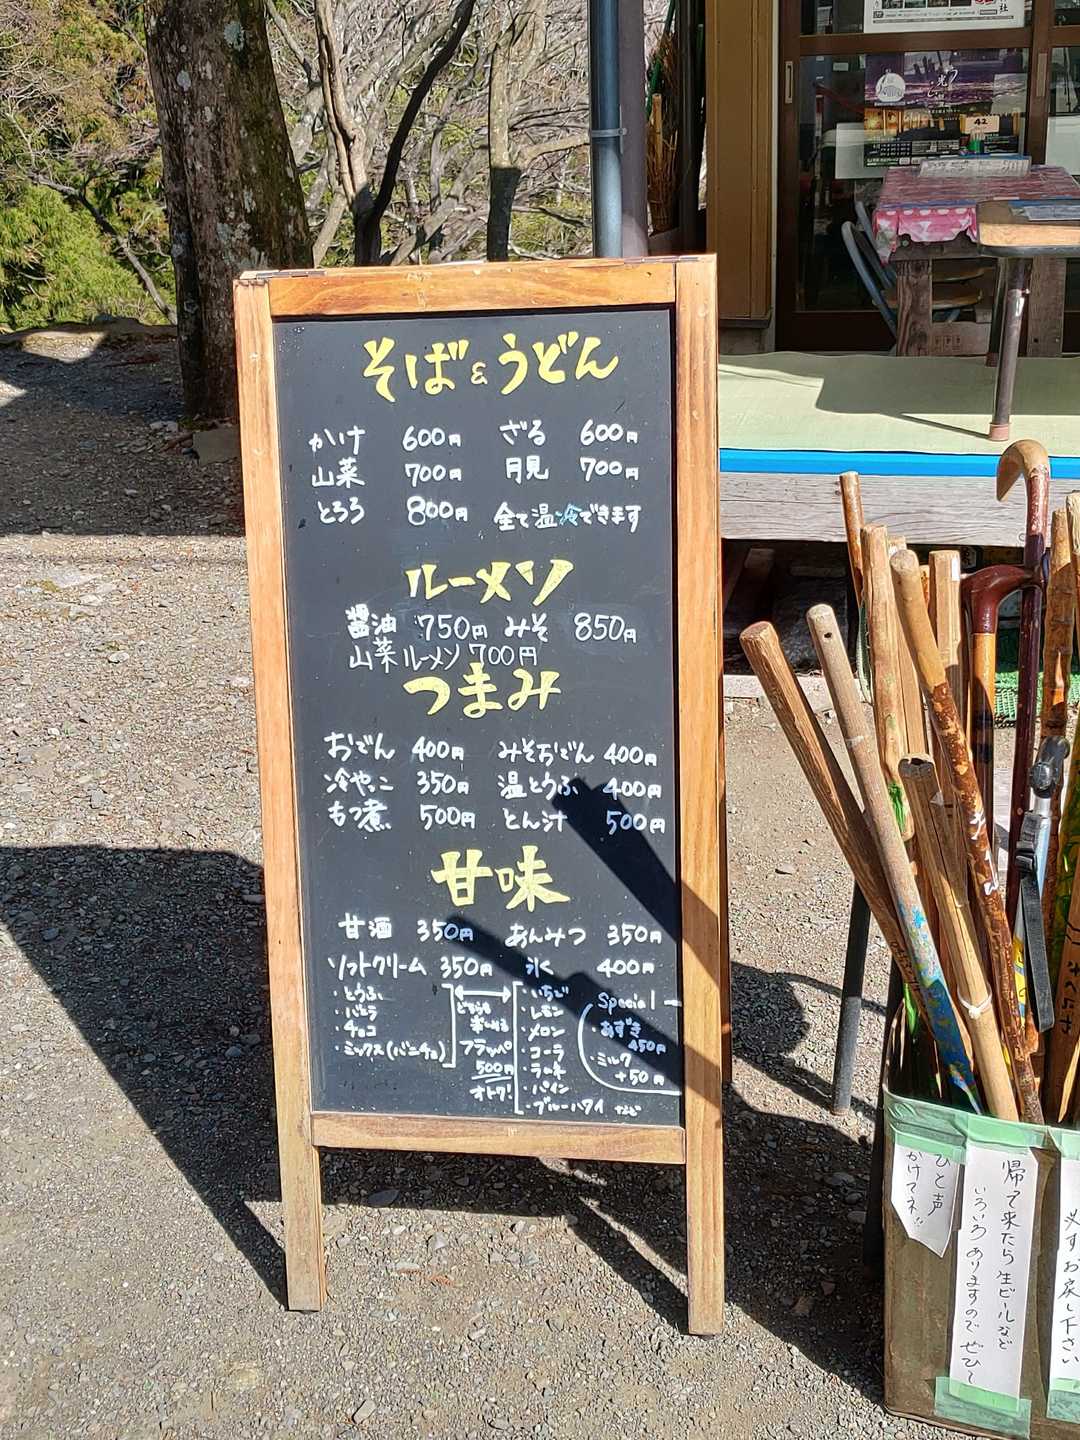 社
42
そば & うどん
かけ 600円 ざる 600円
山菜 700円 月見 700円
とろろ 800円 全て温冷できます
ルーメソ
醤油 750円 みそ 850円
山菜ルーメソ 700円
つまみ
おでん 400円 みそおでん 400円
冷やっこ 350円 温とうふ 400円
もつ煮 500円 とん汁 500円
甘味
甘酒 350円 あんみつ 350円
ソフトクリーム 350円 氷 400円
・とうふ
・バニラ
・チョコ
・ミックス(バニチョ)
どちらも
楽しめる
フラッペ
500円
オトク!
・いちご
・レモン
・メロン
・コーラ
・ラムネ
・パイン
・ブルーハワイ など
Special
あずき
450円
・ミルク
+50円
ひと声
かけてネ!!
帰って来たら生ビールなど
いろいろありますのでぜひ〜
必ずお戻し下さい